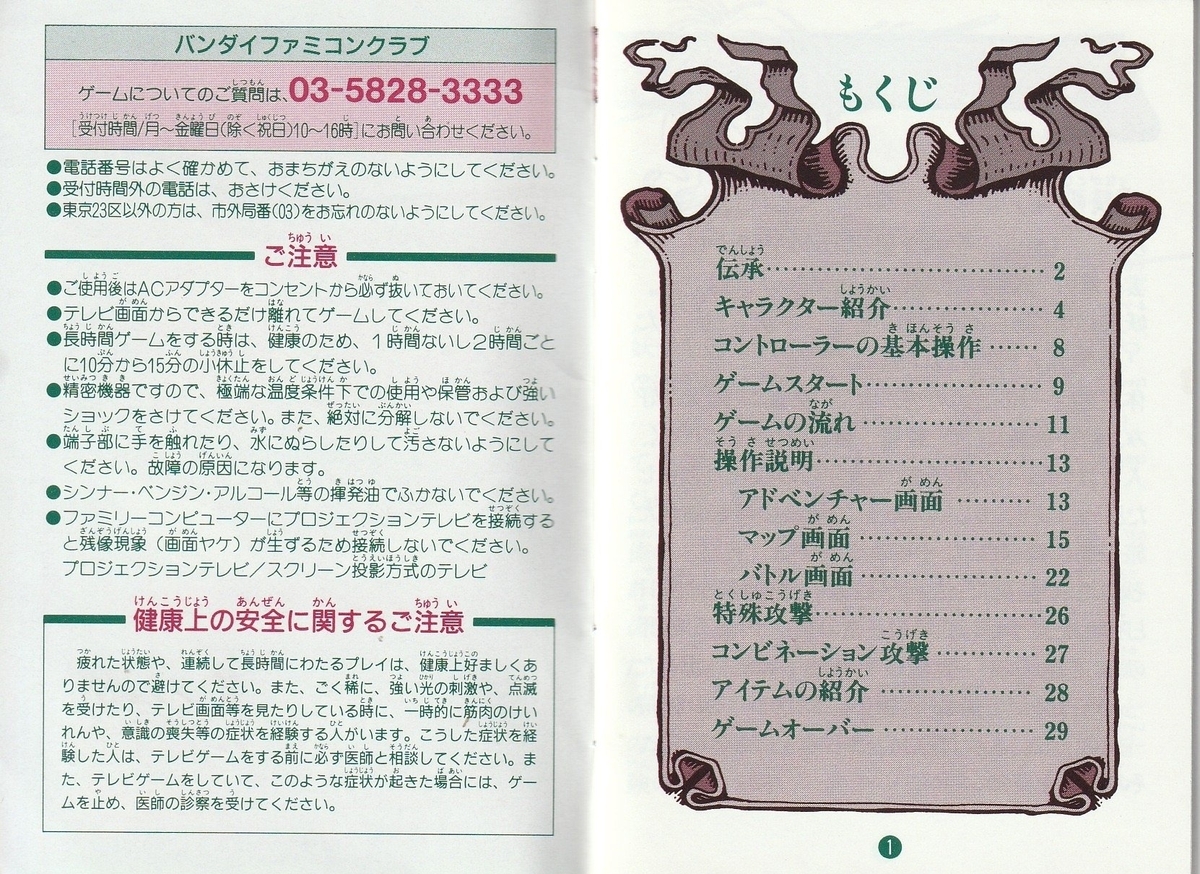 バンダイファミコンクラブ
ゲームについてのご質問は、03-5828-3333
[受付時間/月〜金曜日(除く祝日)10〜16時]にお問い合わせください。
●電話番号はよく確かめて、おまちがえのないようにしてください。
●受付時間外の電話は、おさけください。
●東京23区以外の方は、市外局番(03)をお忘れのないようにしてください。
ご注意
●ご使用後はACアダプターをコンセントから必ず抜いておいてください。
●テレビ画面からできるだけ離れてゲームしてください。
●長時間ゲームをする時は、健康のため、1時間ないし2時間ごと
に10分から15分の小休止をしてください。
●精密機器ですので、極端な温度条件下での使用や保管および強い
ショックをさけてください。また、絶対に分解しないでください。
●端子部に手を触れたり、水にぬらしたりして汚さないようにして
ください。故障の原因になります。
●シンナー・ベンジン・アルコール等の揮発油でふかないでください。
●ファミリーコンピューターにプロジェクションテレビを接続する
と残像現象（画面ヤケ）が生ずるため接続しないでください。
プロジェクションテレビ／スクリーン投影方式のテレビ
健康上の安全に関するご注意
疲れた状態や、連続して長時間にわたるプレイは、健康上好ましくあ
りませんので避けてください。また、ごく稀に、強い光の刺激や、点滅
を受けたり、テレビ画面等を見たりしている時に、一時的に筋肉のけい
れんや、意識の喪失等の症状を経験する人がいます。こうした症状を経
験した人は、テレビゲームをする前に必ず医師と相談してください。ま
た、テレビゲームをしていて、このような症状が起きた場合には、ゲー
ムを止め、医師の診察を受けてください。
もくじ
伝承 2
キャラクター紹介 4
コントローラーの基本操作 8
ゲームスタート 9
ゲームの流れ 11
操作説明 13
アドベンチャー画面 13
マップ画面 15
バトル画面 22
特殊攻撃 26
コンビネーション攻撃 27
アイテムの紹介 28
ゲームオーバー 29
1